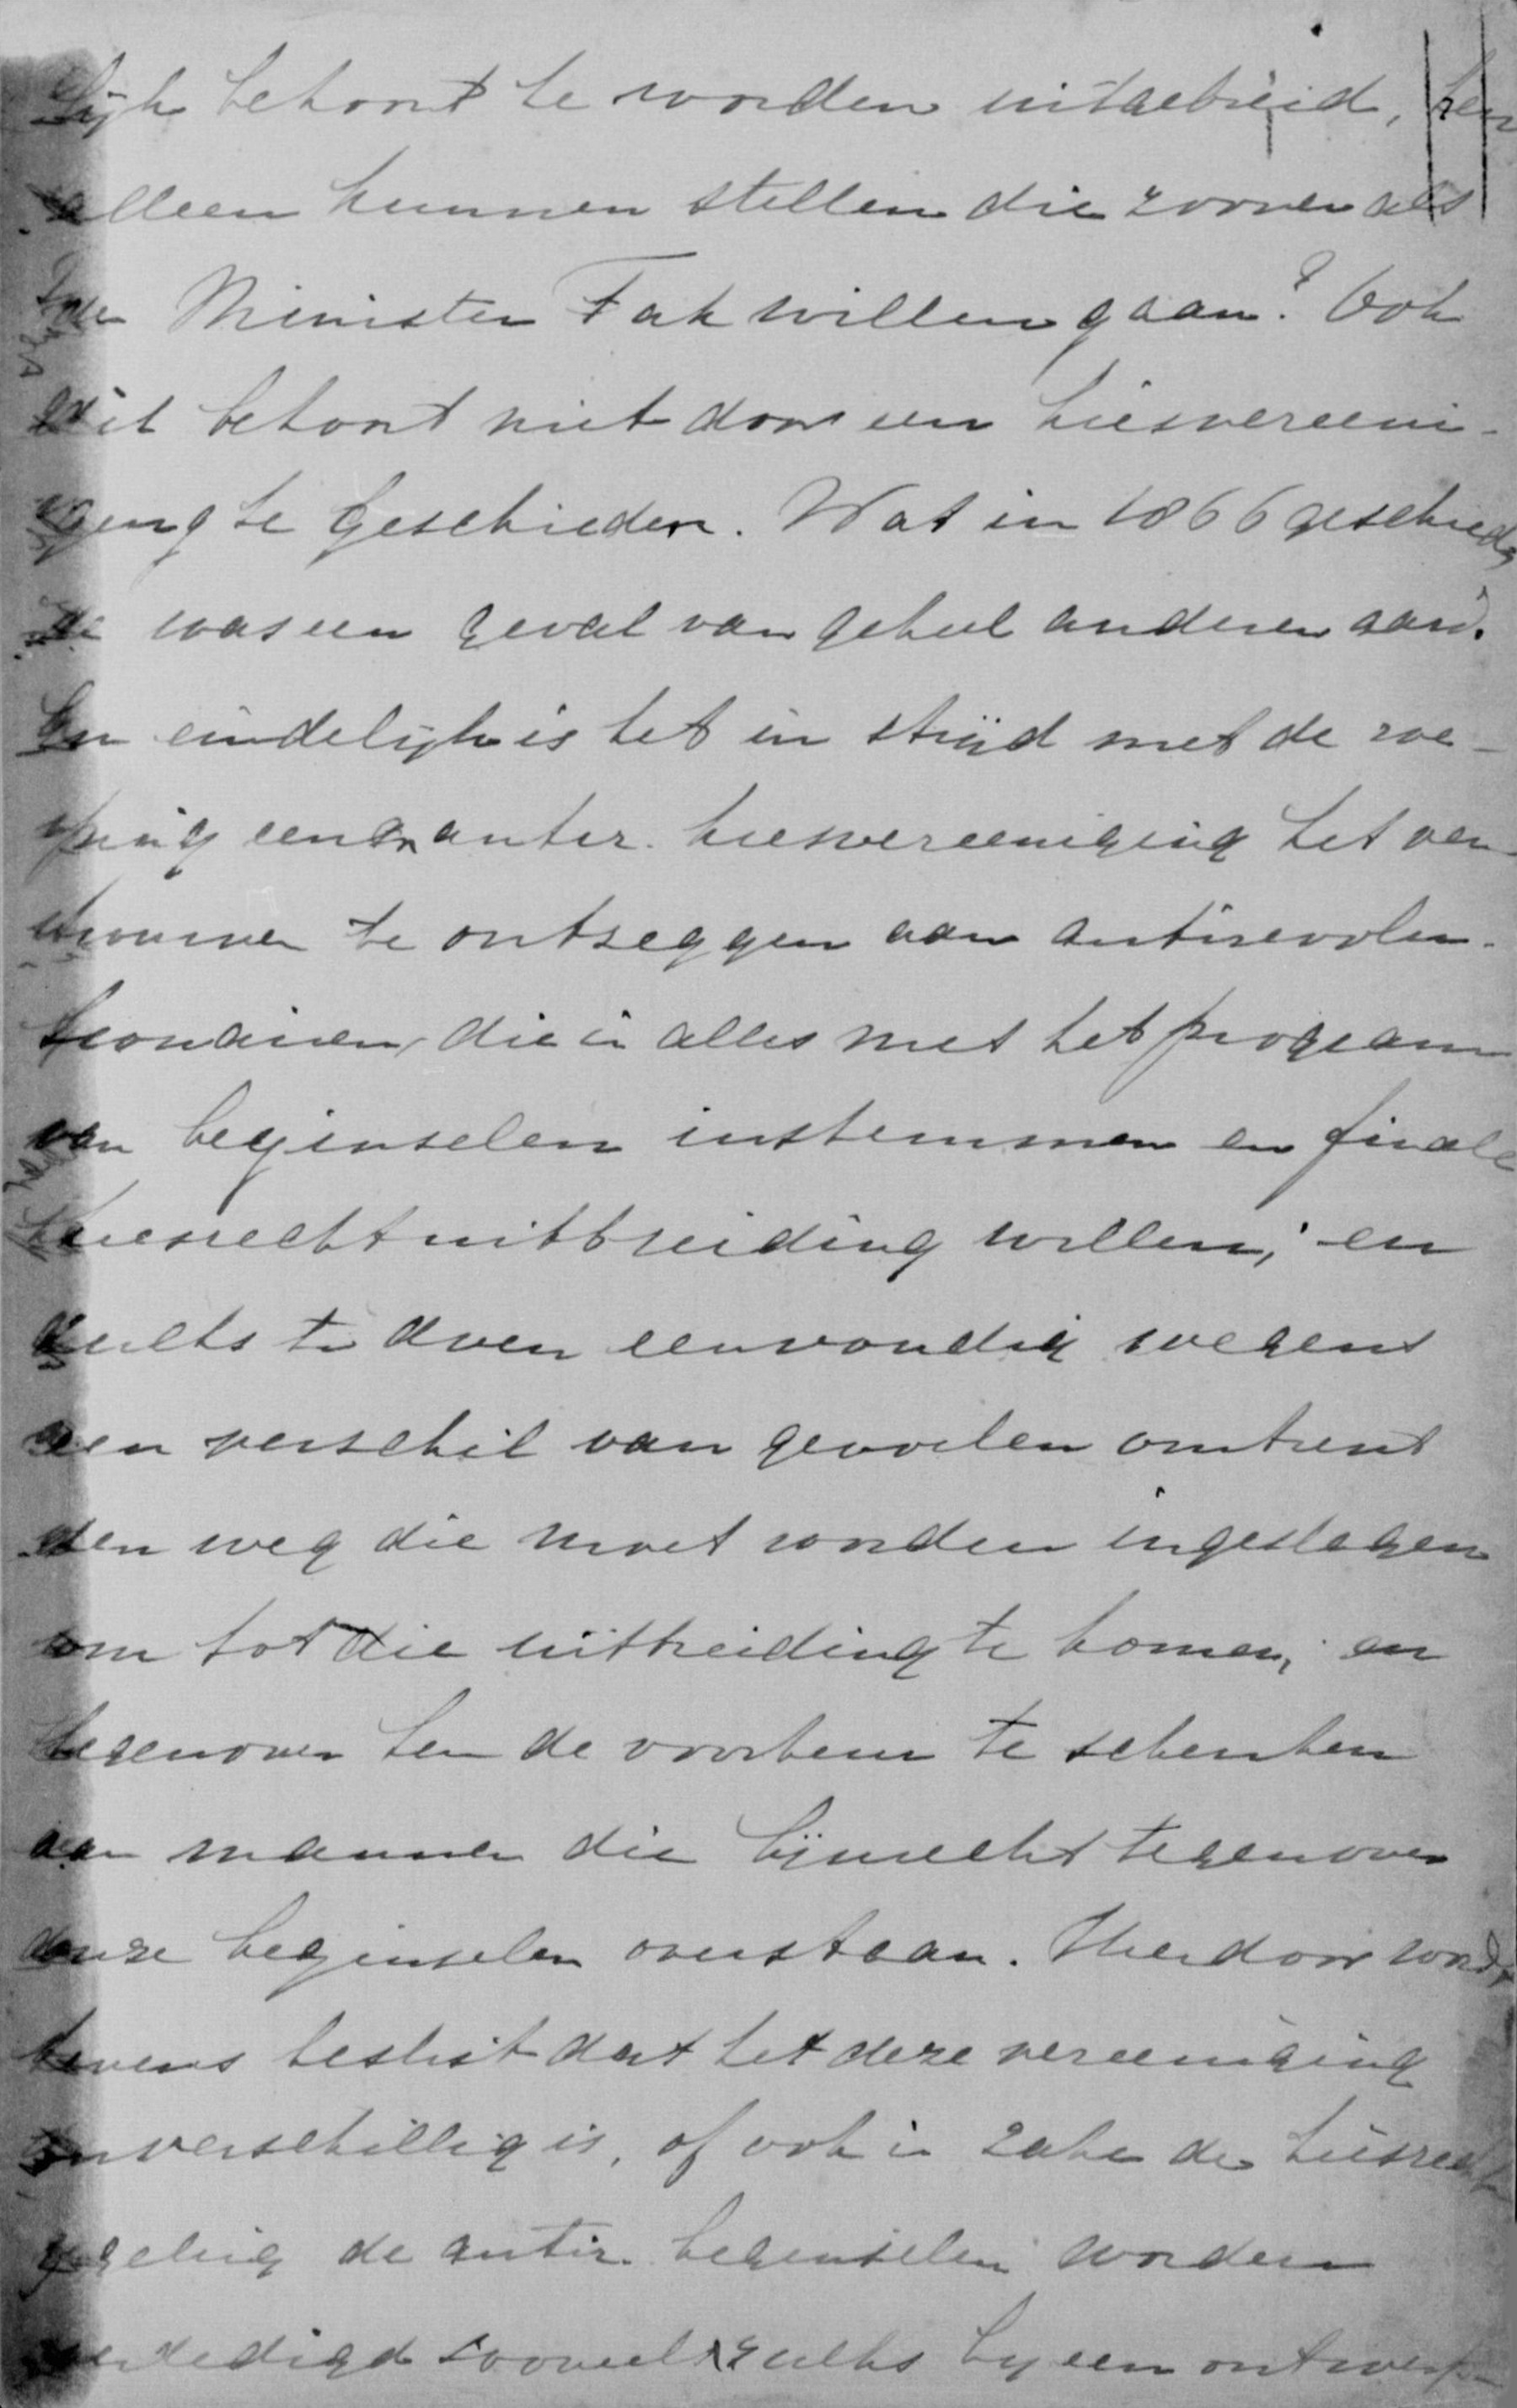 lijk behoort te worden uitgebreid, hen
alleen kunnen stellen die zoover als
de Minister Tak willen gaan? Ook
dit behoort niet door een kiesvereeni-
ging te geschieden. Wat in 1866 geschied-
de was een geval van geheel anderen aard.
En eindelijk is het in strijd met de roe-
ping eener antir. kiesvereeniging het ver-
trouwen te ontzeggen aan antirevolu-
tionairen, die in alles met het program
van beginselen instemmen en finale
kiesrechtuitbreiding willen; en
zulks te doen eenvoudig wegens
een verschil van gevoelen omtrent
den weg die moet worden ingeslagen
om tot die uitbreiding te komen; en
tegenover hen de voorkeur te schenken
aan mannen die lijnrecht tegenover
onze beginselen overstaan. Hierdoor wordt
tevens beslist dat het deze vereeniging
onverschillig is, of ook in zake de kiesrecht
regeling de antir. beginselen worden
verdedigd zooveel zulks by een ontwerp-